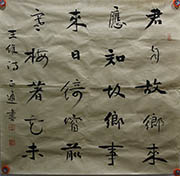 君自故鄉來
應知故鄉事
來日綺窗前
寒梅著花未
王維詩